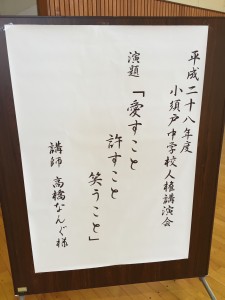 平成二十八年度
小須戸中学校人権講演会
演題
「愛すこと
許すこと
笑うこと」
講師 高橋なんぐ様